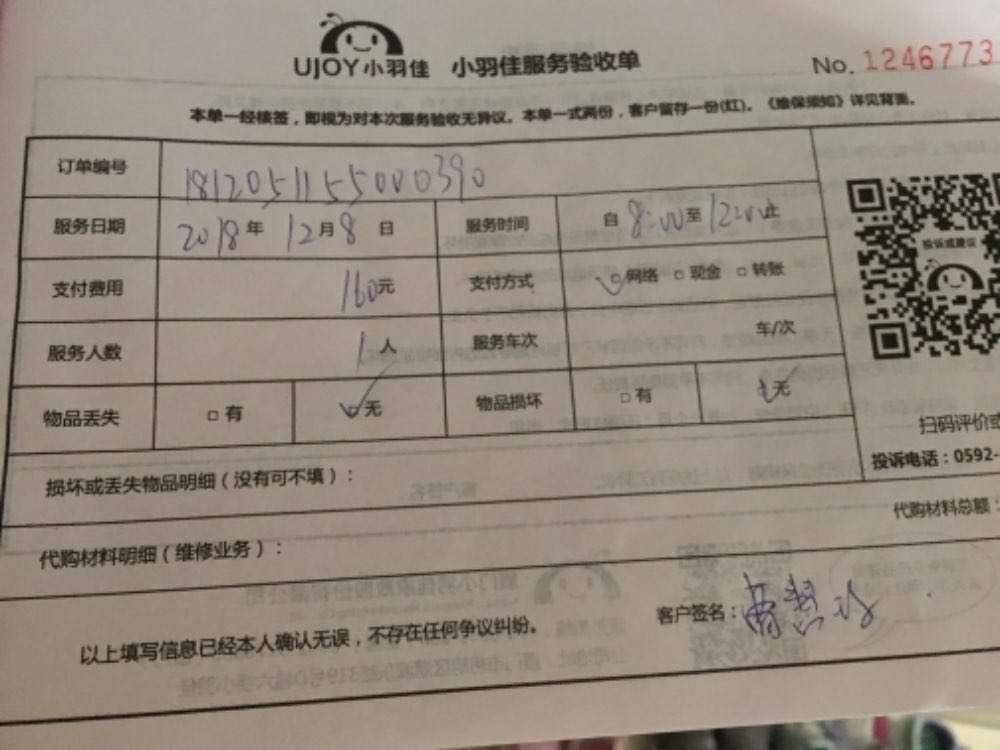 UJOY小羽佳 小羽佳服务验收单 No. 1246773
本单一经核签，即视为对本次服务验收无异议。本单一式两份，客户留存一份(红)。《维保须知》详见背面。
订单编号 1812051155000390
服务日期 2018年 12月8日 服务时间 自8:00至12:00止
支付费用 160元 支付方式 □网络 □现金 □转账
服务人数 1人 服务车次 车/次
物品丢失 □有 □无 物品损坏 □有 □无
投诉或建议
扫码评价或
投诉电话：0592-
损坏或丢失物品明细（没有可不填）：
代购材料明细（维修业务）： 代购材料总额：
以上填写信息已经本人确认无误，不存在任何争议纠纷。 客户签名：